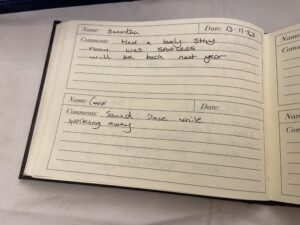 Name: Samantha Date: 13-11-23
Comments: Had a lovely stay
room was spotless
will be back next year
Name: Date:
Comments: Sound place while
working away